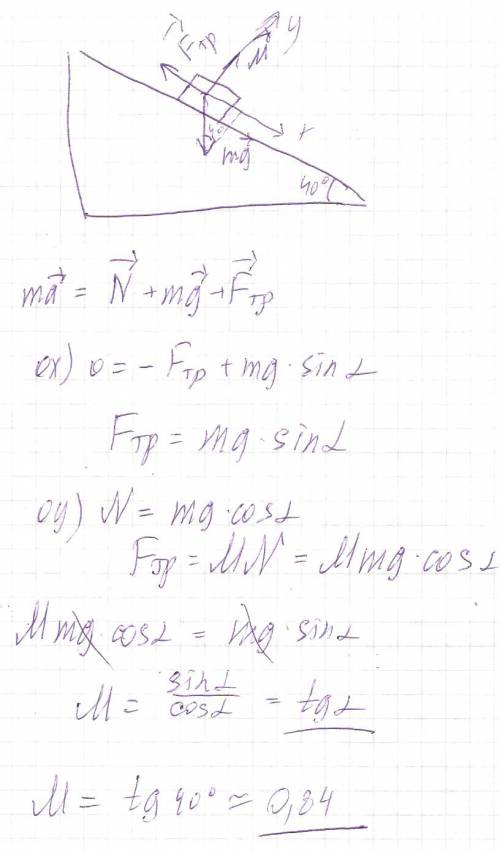 F⃗тр N⃗ y
x
40°
mg⃗
40°
ma⃗ = N⃗ + mg⃗ + F⃗тр
ox) 0 = - Fтр + mg · sin α
Fтр = mg · sin α
oy) N = mg · cos α
Fтр = μN = μmg · cos α
μmg · cos α = mg · sin α
μ = sin α / cos α = tg α
μ = tg 40° ≈ 0,84